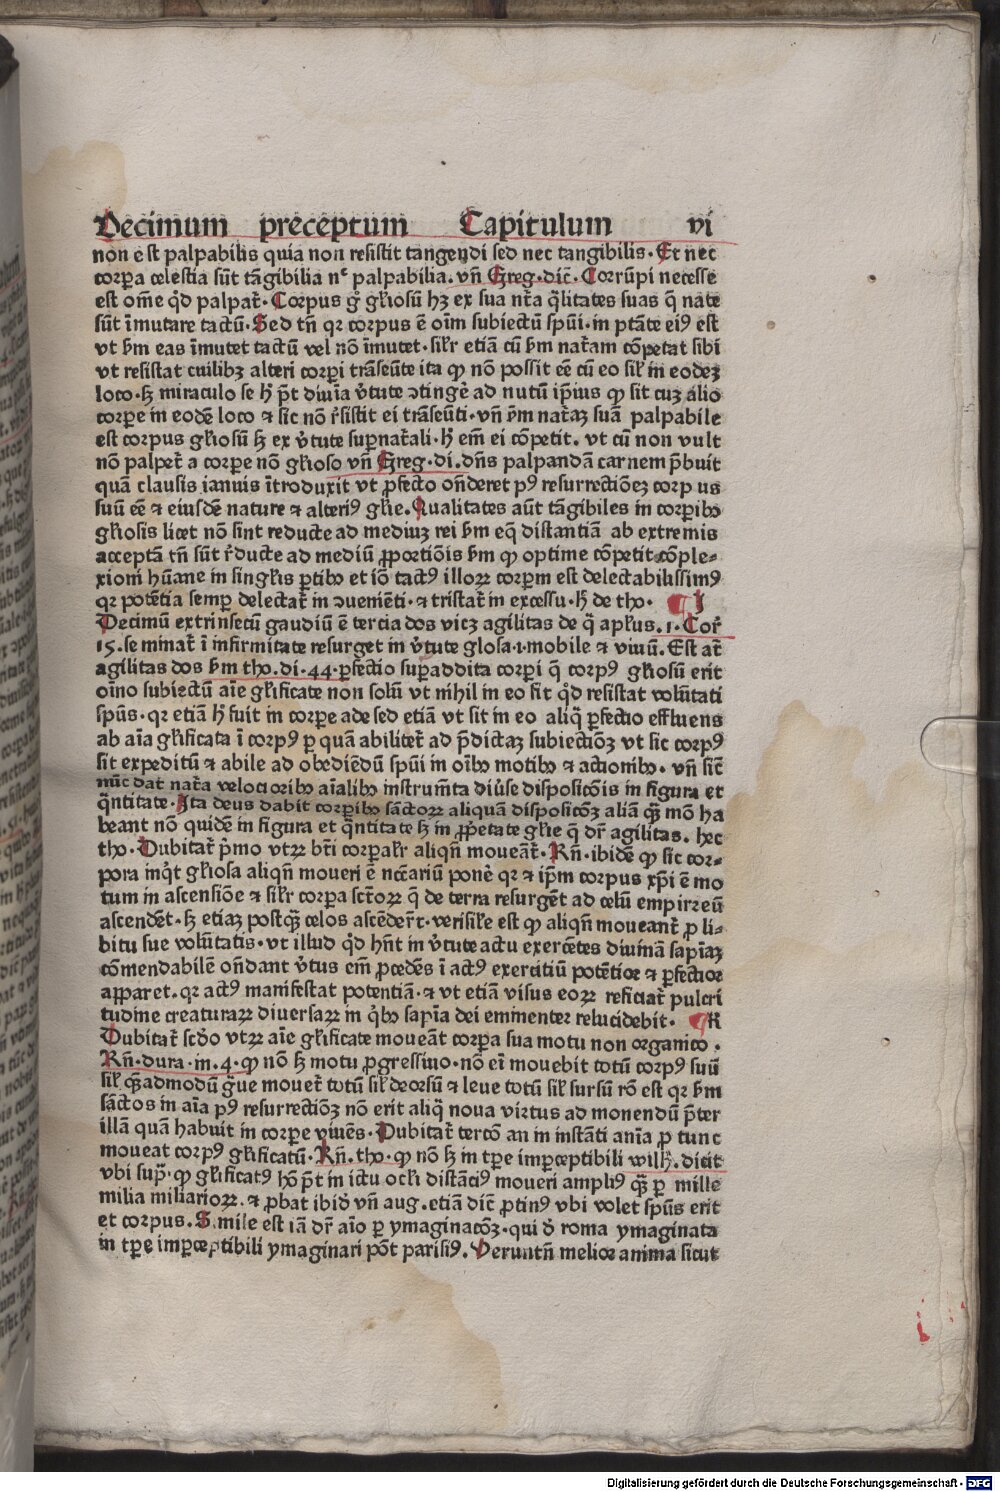 Decimum preceptum Capitulum vi
non est palpabilis quia non resistit tangendi sed nec tangibilis. Et nec
corpa celestia sūt tāgibilia nᶜ palpabilia. vñ Greg. dic̄. Corrūpi necesse
est om̄e q̇d palpat᷑. Corpus g̊ gl̓iosū hꝫ ex sua nr̄a q̄litates suas q̄ nate
sūt īmutare tactū. Sed tn̄ qꝛ corpus ē oīm subiectū spūi. in ptāte eiꝰ est
vt ẜm eas īmutet tactū vel nō īmutet. silr̄ etiā cū ẜm nat᷑am cōpetat sibi
vt resistat cuilibꝫ alteri corpi trāseūte ita ꝙ nō possit eē cū eo sil̓ in eodeꝫ
loco. sꝫ miraculo se h̓ pt̄ diuīa v̓tute ↄtingē ad nutū ip̄ius ꝙ sit cuꝫ alio
corpe in eodē loco ⁊ sic nō r̓sistit ei trāseūti. vñ ẜm nat᷑aꝫ suā palpabile
est corpus gl̓iosū sꝫ ex v̓tute supnat᷑ali. h̓ em̄ ei cōpetit. vt cū non vult
nō palpet᷑ a corpe nō gl̓ioso vñ Greg. di. dn̄s palpandā carnem p̄buit
quā clausis ianuis ītroduxit vt ꝓfecto on̄deret pꝰ resurrectiōeꝫ corpus
suū eē ⁊ eiusdē nature ⁊ alteriꝰ gl̓ie. Qualitates aūt tāgibiles in corpibꝰ
gl̓iosis licet nō sint reducte ad mediuꝫ rei ẜm eq̄ distantiā ab extremis
acceptā tn̄ sūt r̓ducte ad mediū ꝓportiōis ẜm ꝙ optime cōpetit cōple-
xioni hūane in singl̓is ptibꝰ et iō tactꝰ illoꝝ corpm est delectabilissimꝰ
qꝛ potētia semp delectat᷑ in ↄueniēti. ⁊ tristat᷑ in excessu. h̓ de tho. ¶ J
Decimū extrinsecū gaudiū ē tercia dos vicꝫ agilitas de q̄ apl̓us. 1. Cor᷑
15. seminat᷑ ī infirmitate resurget in v̓tute glosa. i. mobile ⁊ viuū. Est at᷑
agilitas dos ẜm tho. di. 44. pfectio supaddita corpi q̄ corpꝰ gl̓iosū erit
oīno subiectū aīe gl̓ificate non solū vt nihil in eo sit q̇d resistat volūtati
spūs. qꝛ etiā h̓ fuit in corpe ade sed etiā vt sit in eo aliq̄ pfectio effluens
ab aīa gl̓ificata ī corpꝰ p quā abilitet᷑ ad p̄dictaꝫ subiectiōꝫ vt sic corpꝰ
sit expeditū ⁊ abile ad obediēdū spūi in oībꝰ motibꝰ ⁊ actionibꝰ. vñ sic̄
nūc dat nat᷑a velocioribꝰ aīalibꝰ instrum̄ta diu̓se dispositōis in figura et
q̄ntitate. Ita deus dabit corpibꝰ sāctoꝝ aliquā dispositōꝫ aliā qꝫ̄ mō ha
beant nō quidē in figura et q̄ntitate sꝫ in ꝓp̓etate gl̓ie q̄ dr̄ agilitas. hec
tho. Dubitat᷑ p̄mo vtꝝ bt̄i corpalr̄ aliqn̄ moueāt᷑. Rn̄. ibidē ꝙ sic cor-
pora inq̇t gl̓iosa aliqn̄ moueri ē nc̄cariū ponē qꝛ ⁊ ip̄m corpus xp̄i ē mo
tum in ascensiōe ⁊ silr̄ corpa sct̄oꝝ q̄ de terra resurgēt ad celū empirreū
ascendēt. sꝫ etiaꝫ postqꝫ̄ celos ascēder̄t. verisile est ꝙ aliqn̄ moueant᷑ ꝓ li-
bitu sue volūtatis. vt illud q̇d hn̄t in v̓tute actu exercētes diuinā sapiaꝫ
cōmendabilē on̄dant v̓tus em̄ ꝓcedēs ī actꝰ exercitiū potētior ⁊ pfectior
apparet. qꝛ actꝰ manifestat potentiā. ⁊ vt etiā visus eoꝝ reficiat᷑ pulcri
tudine creaturaꝝ diuersaꝝ in q̇bꝰ sapīa dei eminenter relucidebit. ¶ K
Dubitat᷑ scd̓o vtꝝ aīe gl̓ificate moueāt corpa sua motu non organico.
Rn̄. dura. in. 4. ꝙ nō sꝫ motu ꝓgressiuo. nō ei᷑ mouebit totū corpꝰ suū
sil̓ qꝫ̄admodū g̓ue mouet᷑ totū sil̓ deorsū ⁊ leue totū sil̓ sursū rō est qꝛ ẜm
sāctos in aīa pꝰ resurrectiōꝫ nō erit aliq̄ noua virtus ad monendū p̄ter
illā quā habuit in corpe viuēs. Dubitat᷑ tercō an in instāti anīa ꝓ tunc
moueat corpꝰ gl̓ificatū. Rn̄. tho. ꝙ nō sꝫ in tpe impceptibili wilh̓. dicit
vbi sup᷑. ꝙ gl̓ificatꝰ hō pt̄ in ictu ocl̓i distāciꝰ moueri ampliꝰ qꝫ̄ p mille
milia miliarioꝝ. ⁊ ꝓbat ibid̓ vñ aug. etiā dic̄ ꝓtinꝰ vbi volet spūs erit
et corpus. Simile est iā dr̄ aīo p ymaginacōꝫ. qui d̓ roma ymaginata
in tpe impceptibili ymaginari pōt parisiꝰ. Veruntn̄ melior anima sicut